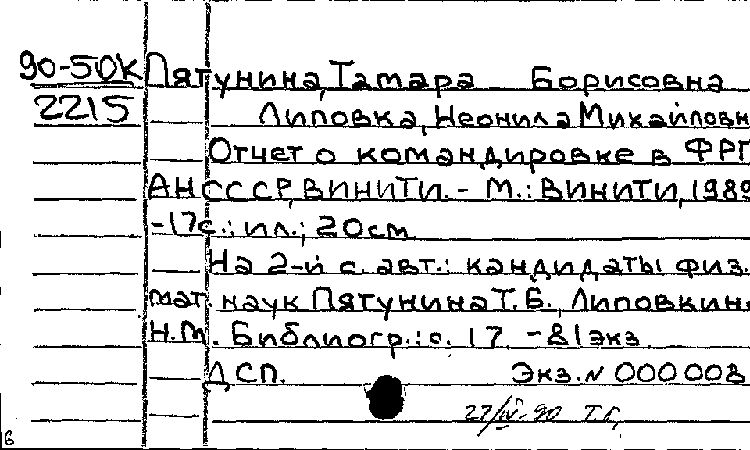 90-50К Пятунина, Тамара Борисовна
2215 Липовка, Неонила Михайловн
Отчет о командировке в ФРГ
АН СССР, ВИНИТИ. - М.: ВИНИТИ, 1989
-17с.: ил.; 20см
На 2-й с. авт.: кандидаты физ.
мат. наук Пятунина Т.Б., Липовкина
Н.М. Библиогр.: с. 17. - 81экз.
ДСП. Экз.N 000008
27/IV-90 Т.Г.
6